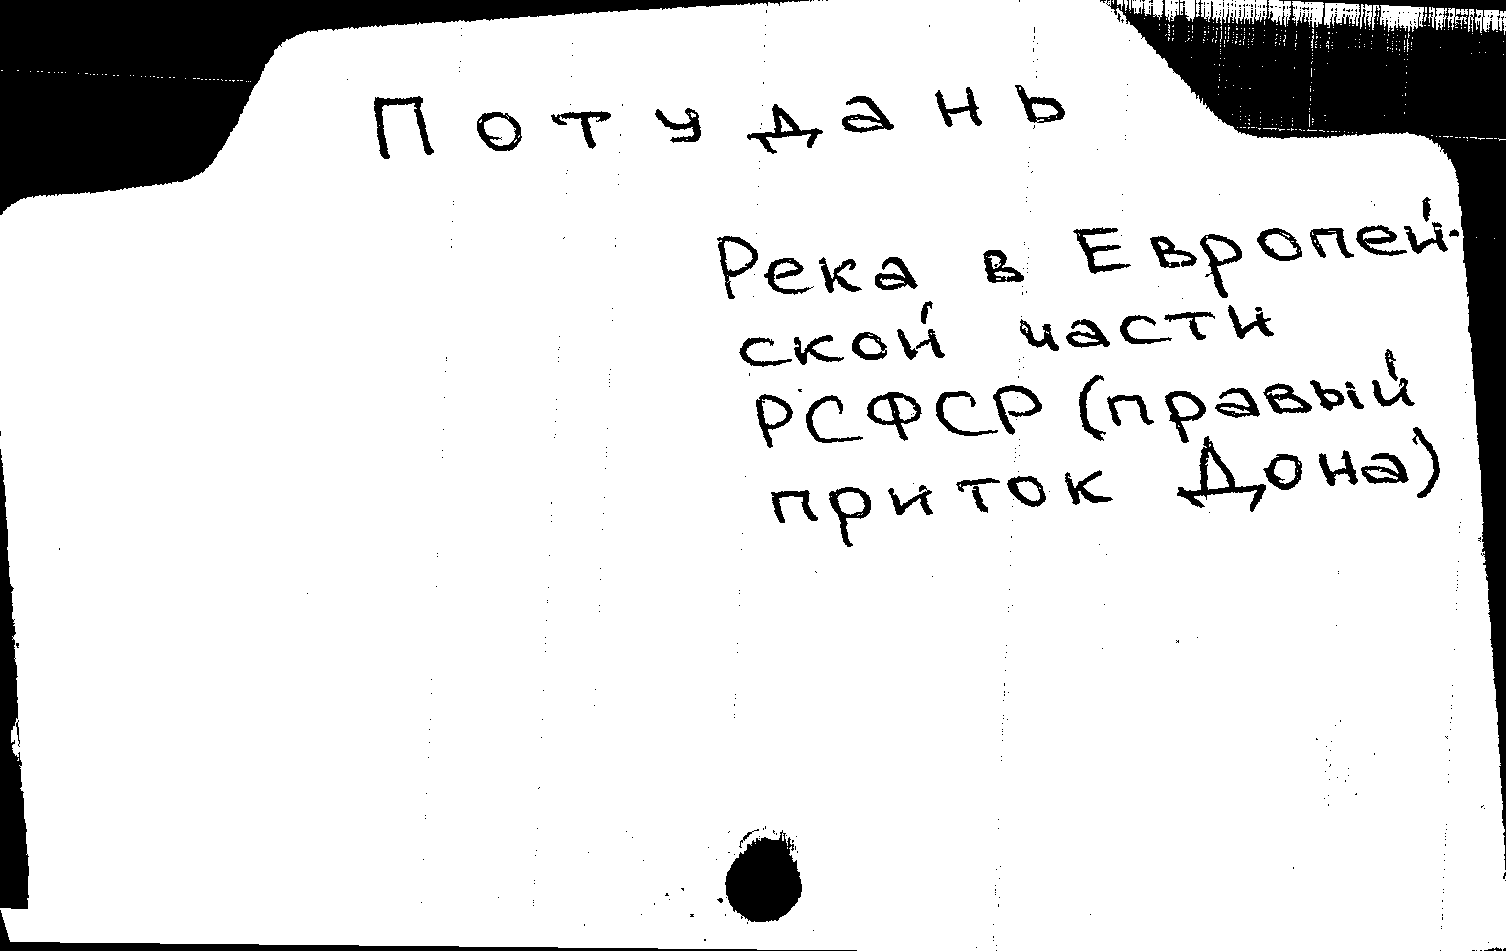 Потудань
Река в Европей-
ской части
РСФСР (правый
приток Дона)